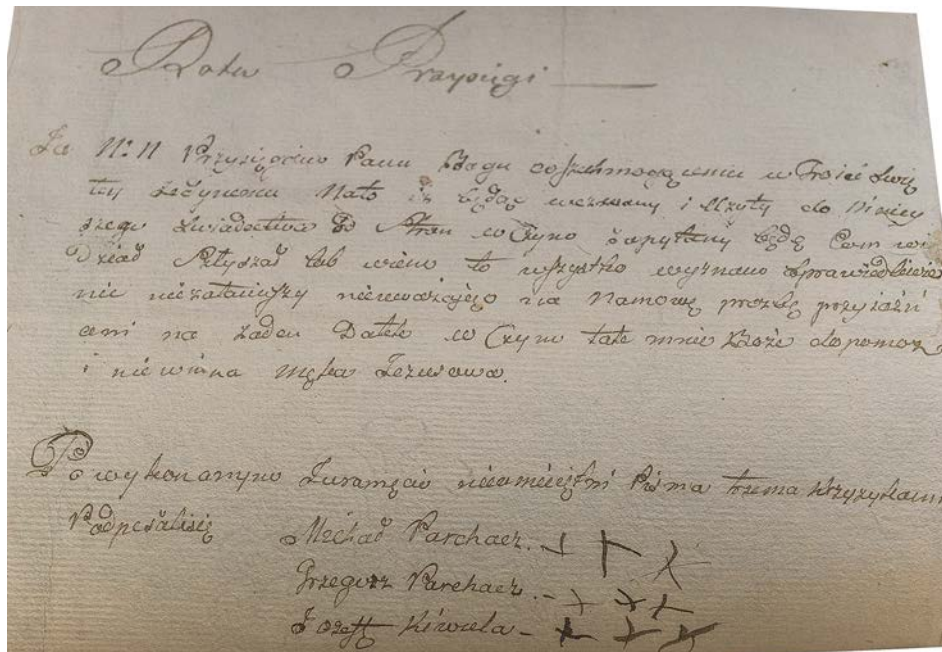 Rota Przysięgi
Ja N: N Przysięgam Panu Bogu wszehmogącemu w Troicé Swię
tey Jedynemu Nato iż będąc wezwany i Użyty do Niniey
szego Swiadectwa Od Stron w Czym zapytany będę Com wi
Dział Słyszał lub wiem to wszystko wyznam Sprawiedliwie
nic niezataiwszy nieuważając na Namowę prozbę przyiaźń
ani na żaden Datek w Czym tak mnie Boże dopomoż
i niewinna męka Jezusowa.
Po wykonanym Juramęcie nieumieiętni Pisma trzema krzyżykami
Podpisalisię
Michał Parchacz. + + +
Grzegorz Parchacz. - + + +
Jozeff Kiwula - + + +